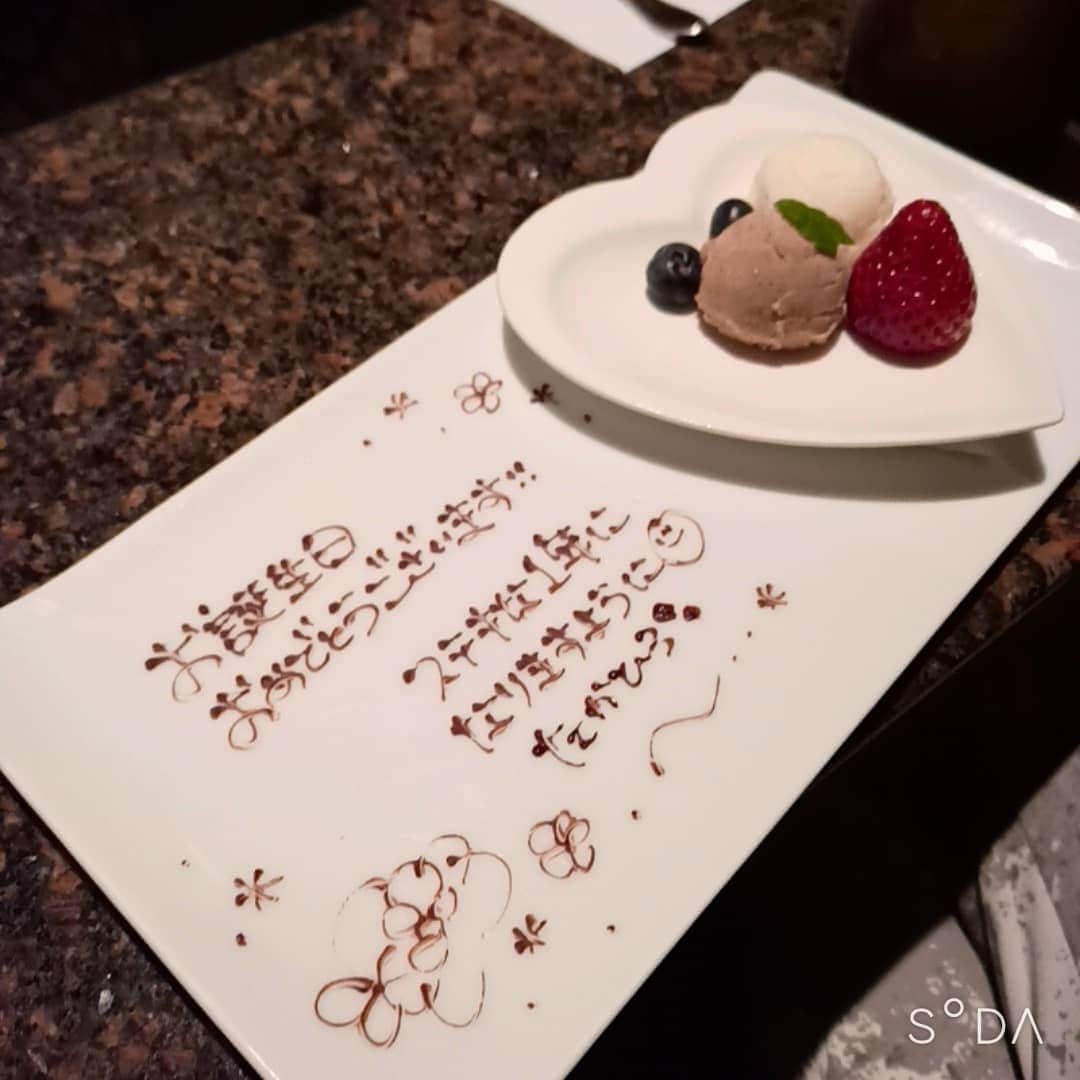 お誕生日
おめでとうございます!!
ステキな1年に
なりますように
たかひろ
SODA